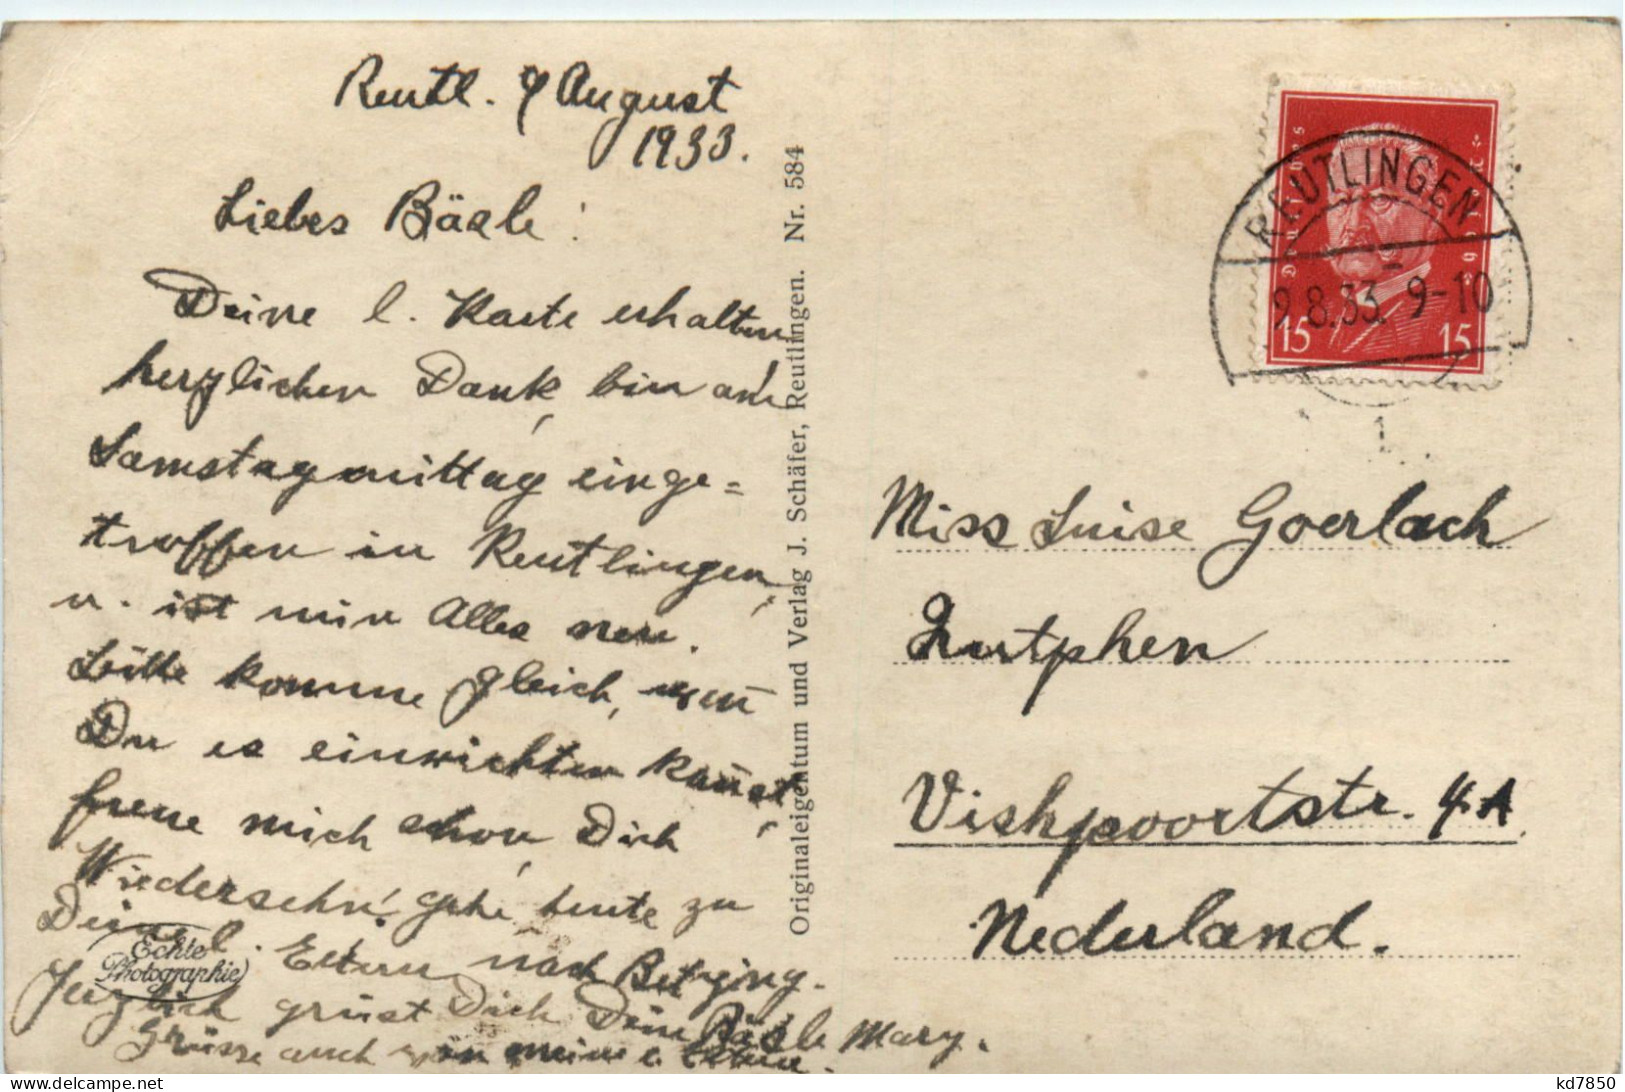 Reutl. 9 August
1933.
Liebes Bäsle!
Deine l. Karte erhalten
herzlichen Dank, bin am
Samstagmittag einge=
troffen in Reutlingen,
u. ist mir Alles neu.
Bitte komme gleich, wenn
Du es einrichten kannst,
freue mich schon, Dich
Wiedersehn! gehe heute zu
Deine l. Eltern nach Betzging.
Herzlich grüst Dich Deine Bäsle Mary.
Grüsse auch von meine l. Eltern.
Echte
Photographie
Originaleigentum und Verlag J. Schäfer, Reutlingen. Nr. 584
Deutsches Reich
REUTLINGEN
9.8.33. 9-10
15 15
1
Miss Luise Goerlach
Zutphen
Vishpoortstr. 4A.
Nederland.
kd7850